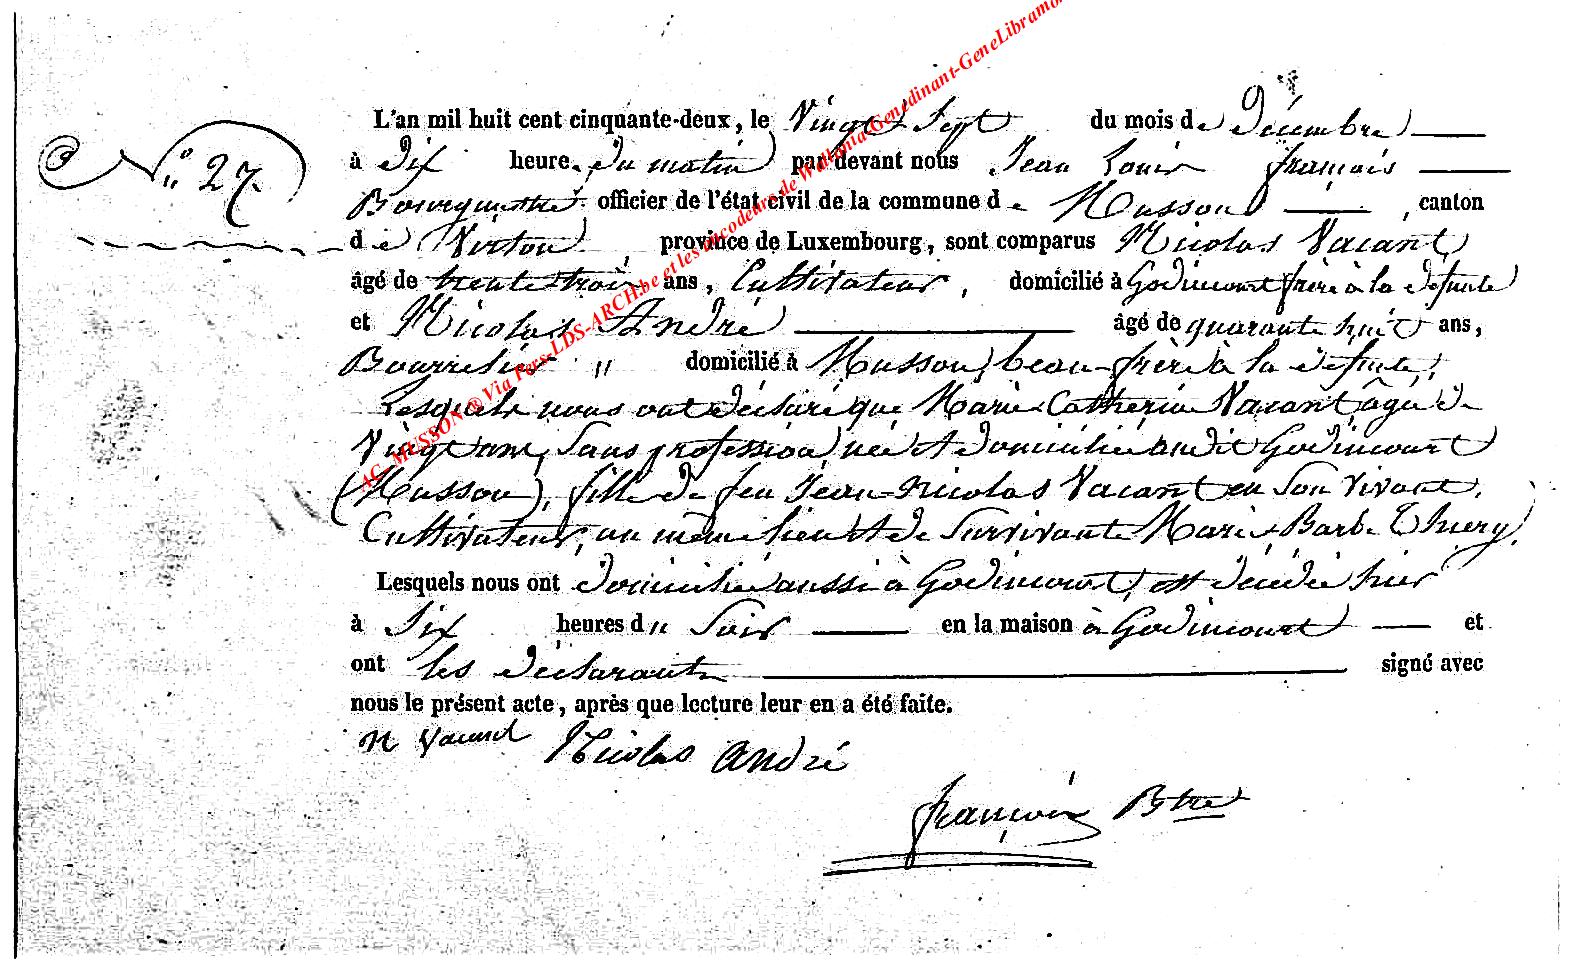 N° 27.
L'an mil huit cent cinquante-deux, le Vingt Sept du mois de Décembre
à Dix heure du matin par devant nous Jean Louis françois
Bourgmestre officier de l'état civil de la commune de Musson, canton
de Virton, province de Luxembourg, sont comparus Nicolas Vacant
âgé de trente trois ans, Cultivateur, domicilié à Godincourt frère à la défunte
et Nicolas André âgé de quarante huit ans,
Bourrelier " domicilié à Musson, beau-frère à la défunte,
Lesquels nous ont déclaré que Marie Catherine Vacant âgée de
Vingt ans, Sans profession, née et domiciliée audit Godincourt
(Musson), fille de feu Jean-Nicolas Vacant en Son vivant,
Cultivateur, au même lieu et de Survivante Marie Barbe Thiery,
Lesquels nous ont domiciliée aussi à Godincourt, est décédée hier
à Six heures du Soir en la maison à Godincourt et
ont les déclarants signé avec
nous le présent acte, après que lecture leur en a été faite.
N Vacant Nicolas André
françois Bstre
AC-MUSSON ® Via Pers-LDS-ARCH.be et les encodeurs de Wallonia-Genedinant-GeneLibramo